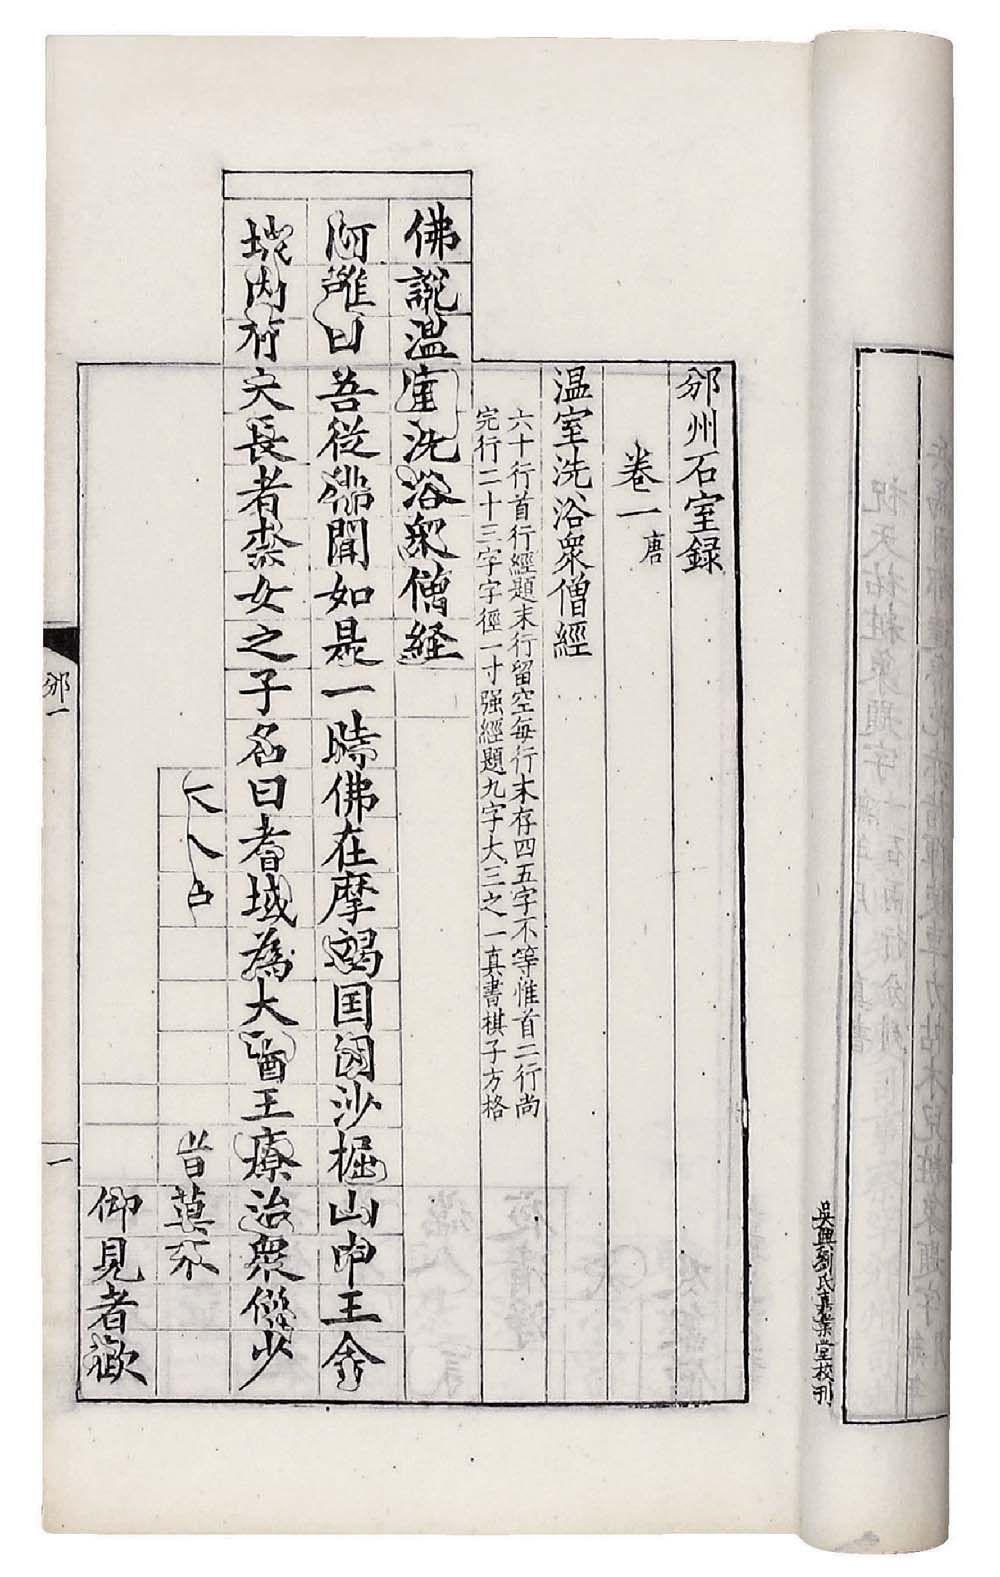 邠州石室録
卷一 唐
温室洗浴衆僧經
六十行首行經題末行留空每行末存四五字不等惟首二行尚
完行二十三字字徑一寸强經題九字大三之一真書棋子方格
佛説温室洗浴衆僧経
阿難曰吾從佛聞如是一時佛在摩竭国因沙掘山中王舍
城内有大長者柰女之子名曰耆域為大醫王療治衆僧少
大人占 昔莫不
仰見者歡
邠一
一
吳興劉氏嘉業堂校刊